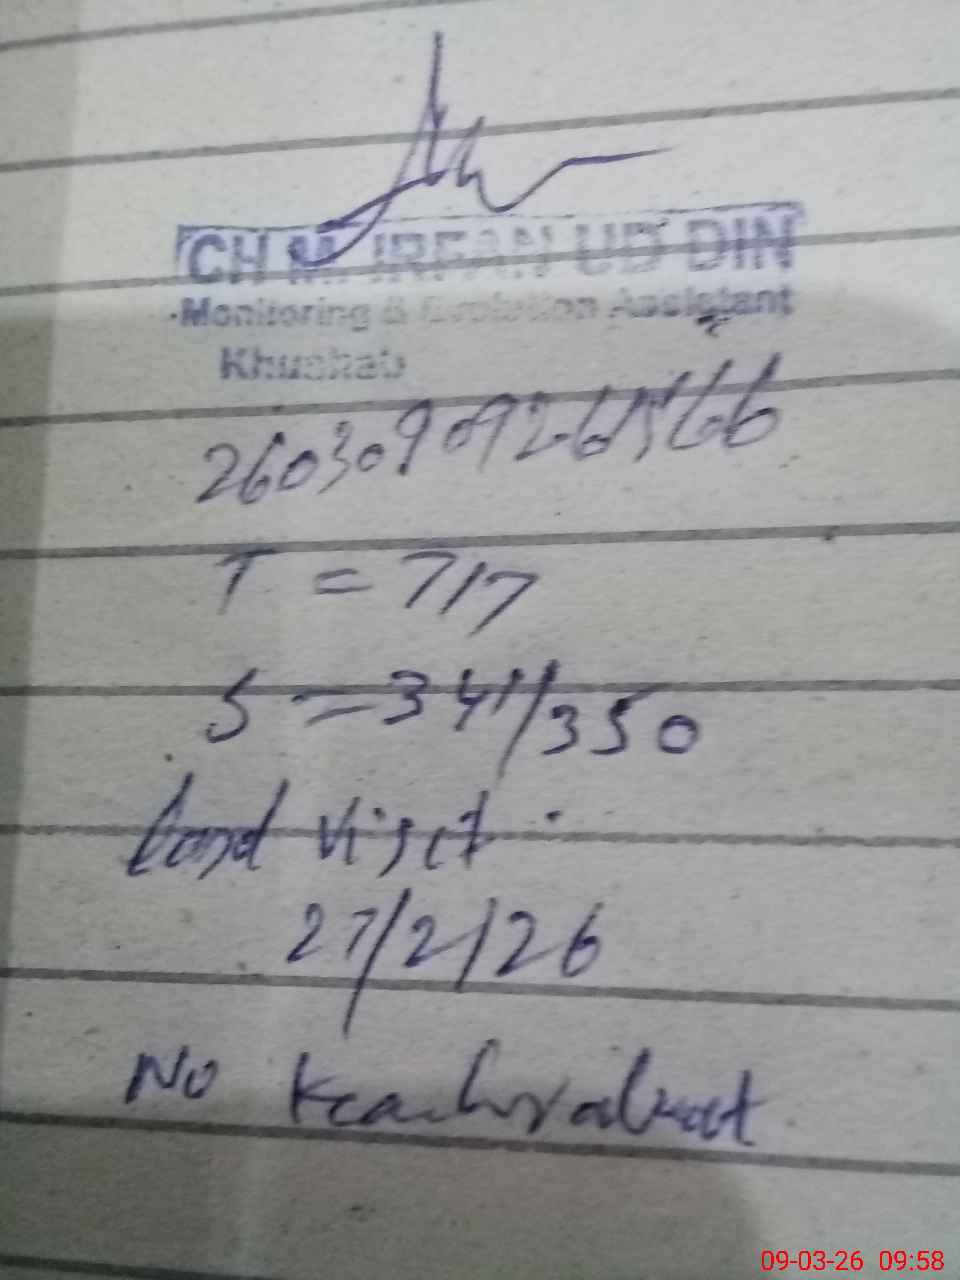 CH M. IRFAN UD DIN
Monitoring & Evolution Assistant
Khushab
T = 717
S = 341/350
visit
27/2/26
No
09-03-26 09:58